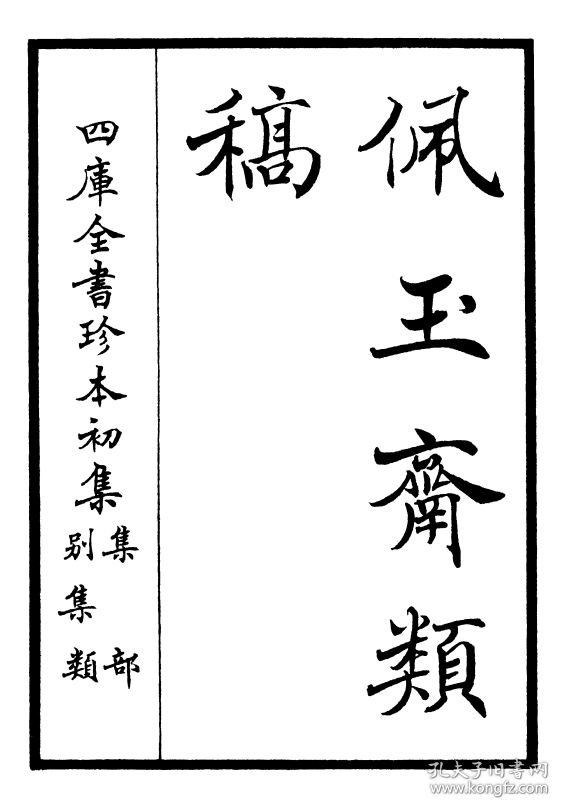 佩玉齋類
稿
四庫全書珍本初集
集部
別集類
孔夫子旧书网
www.kongfz.com